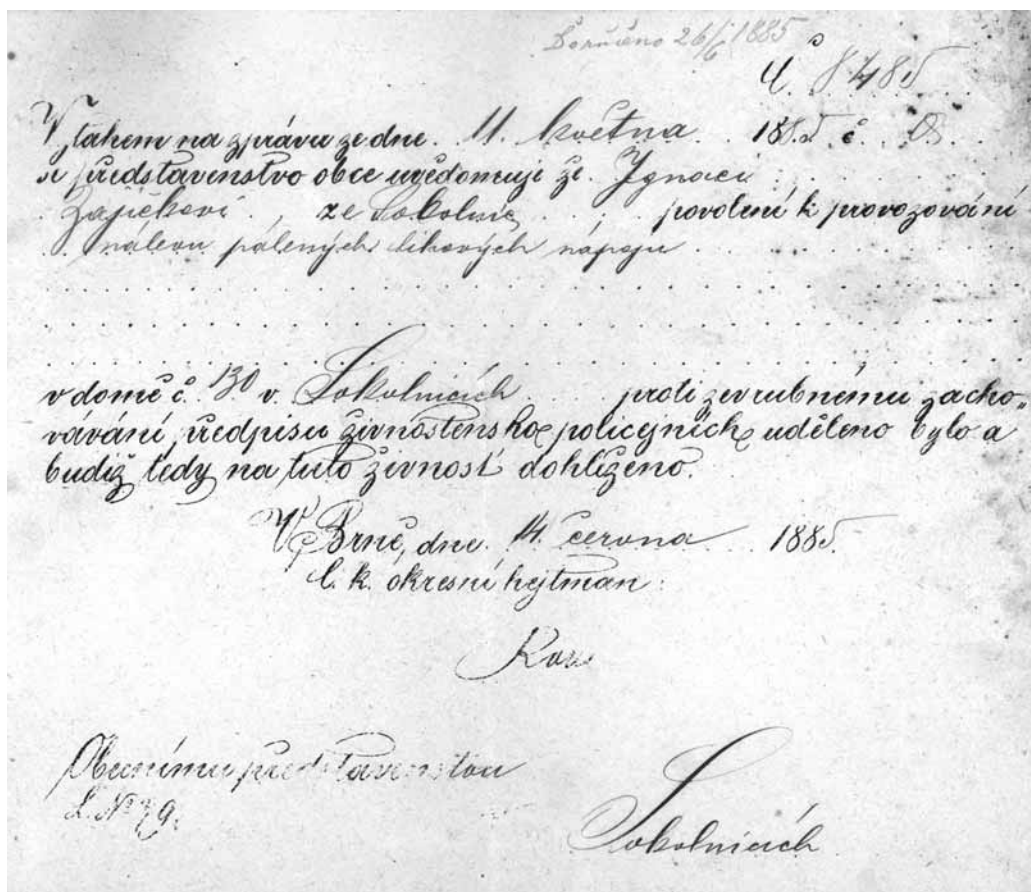 Doručeno 26/6 1885
Č. 8485
Vztahem na zprávu ze dne 11. května 1885 č.
se představenstvo obce uvědomuje že Ignaci
Zajíčkovi, ze Sokolnic, povolení k provozování
nálevu pálených lihových nápoju
v domě č. 130 v Sokolnicích proti zevrubnému zacho-
vávání předpisu živnostensko policejních uděleno bylo a
budiž tedy na tuto živnost dohlíženo.
V Brně, dne 14. června 1885.
C. k. okresní hejtman:
Obecnímu představenstvu
Sokolnicích